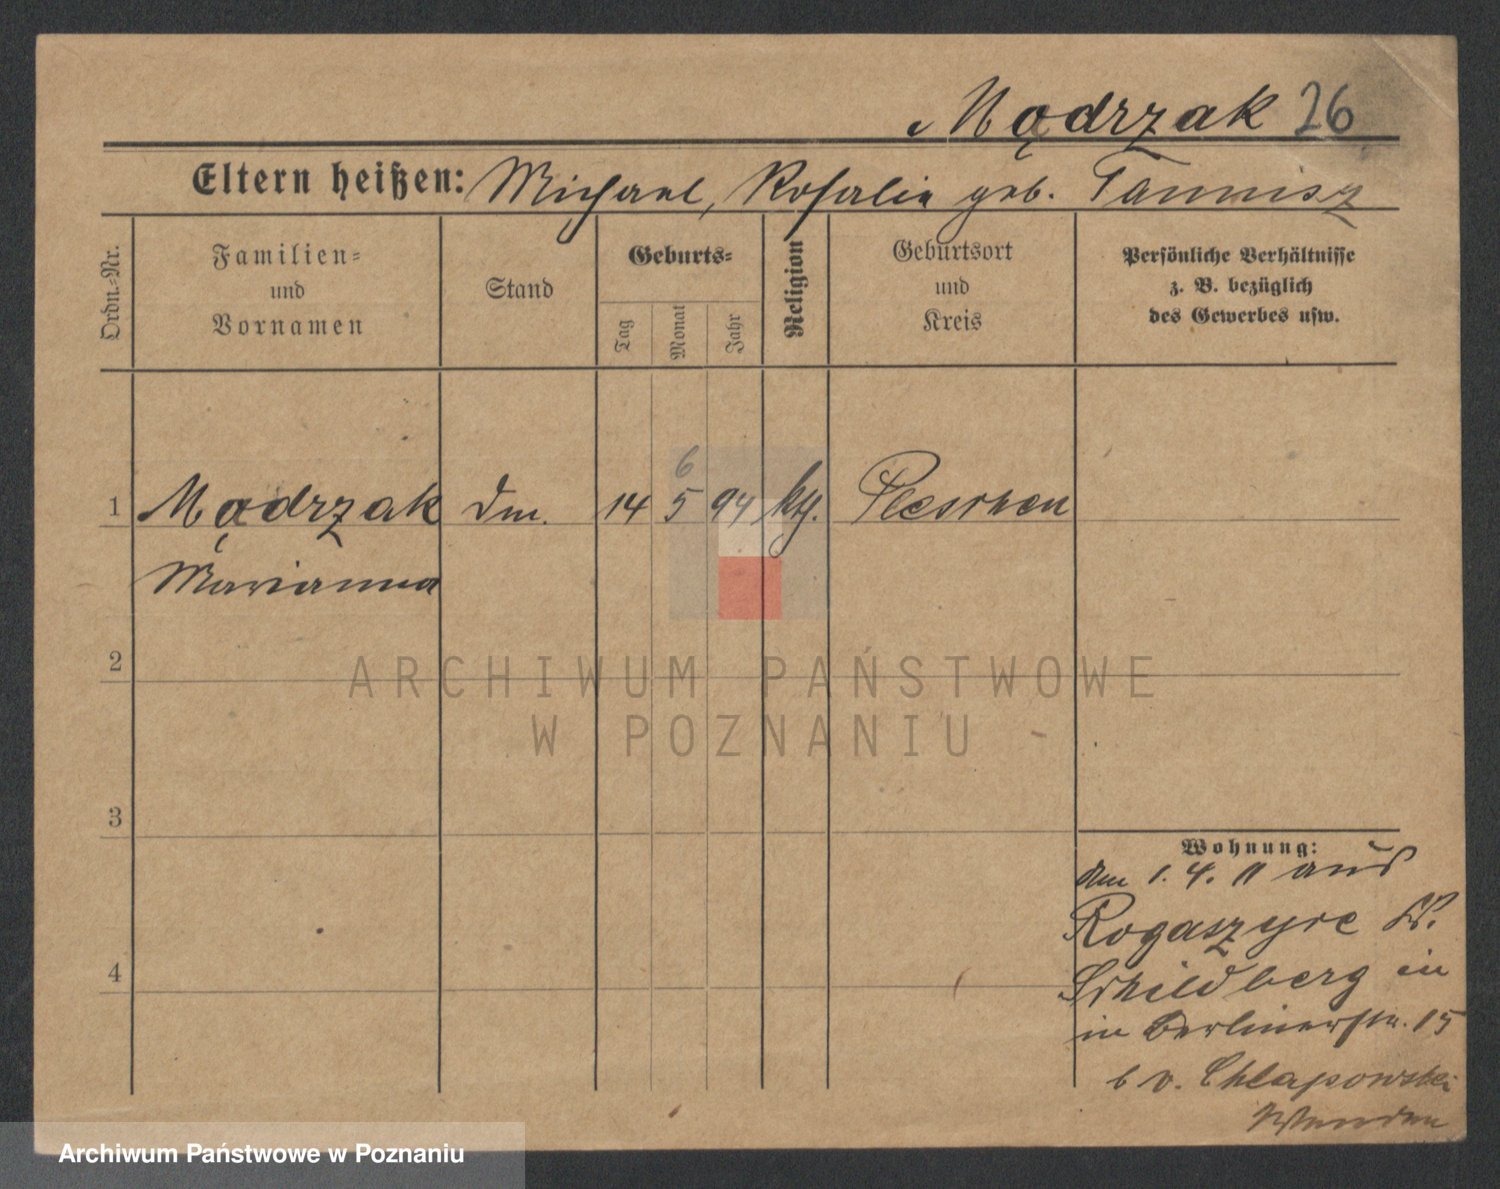 Mądrzak 26
Eltern heißen: Michael, Rosalie geb.
Ordn.-Nr.
Familien-
und
Vornamen
Stand
Geburts-
Tag
Monat
Jahr
Religion
Geburtsort
und
Kreis
Persönliche Verhältnisse
z. B. bezüglich
des Gewerbes usw.
6
1 Mądrzak Dm. 14 5 94 kth. Pleschen
Marianna
2
3
4
Wohnung:
den 1. 4. 11 aus
Rogaszyce K.
Schildberg in
in Berlinerstr. 15
b v. Chlapowski
ARCHIWUM PAŃSTWOWE
W POZNANIU
Archiwum Państwowe w Poznaniu